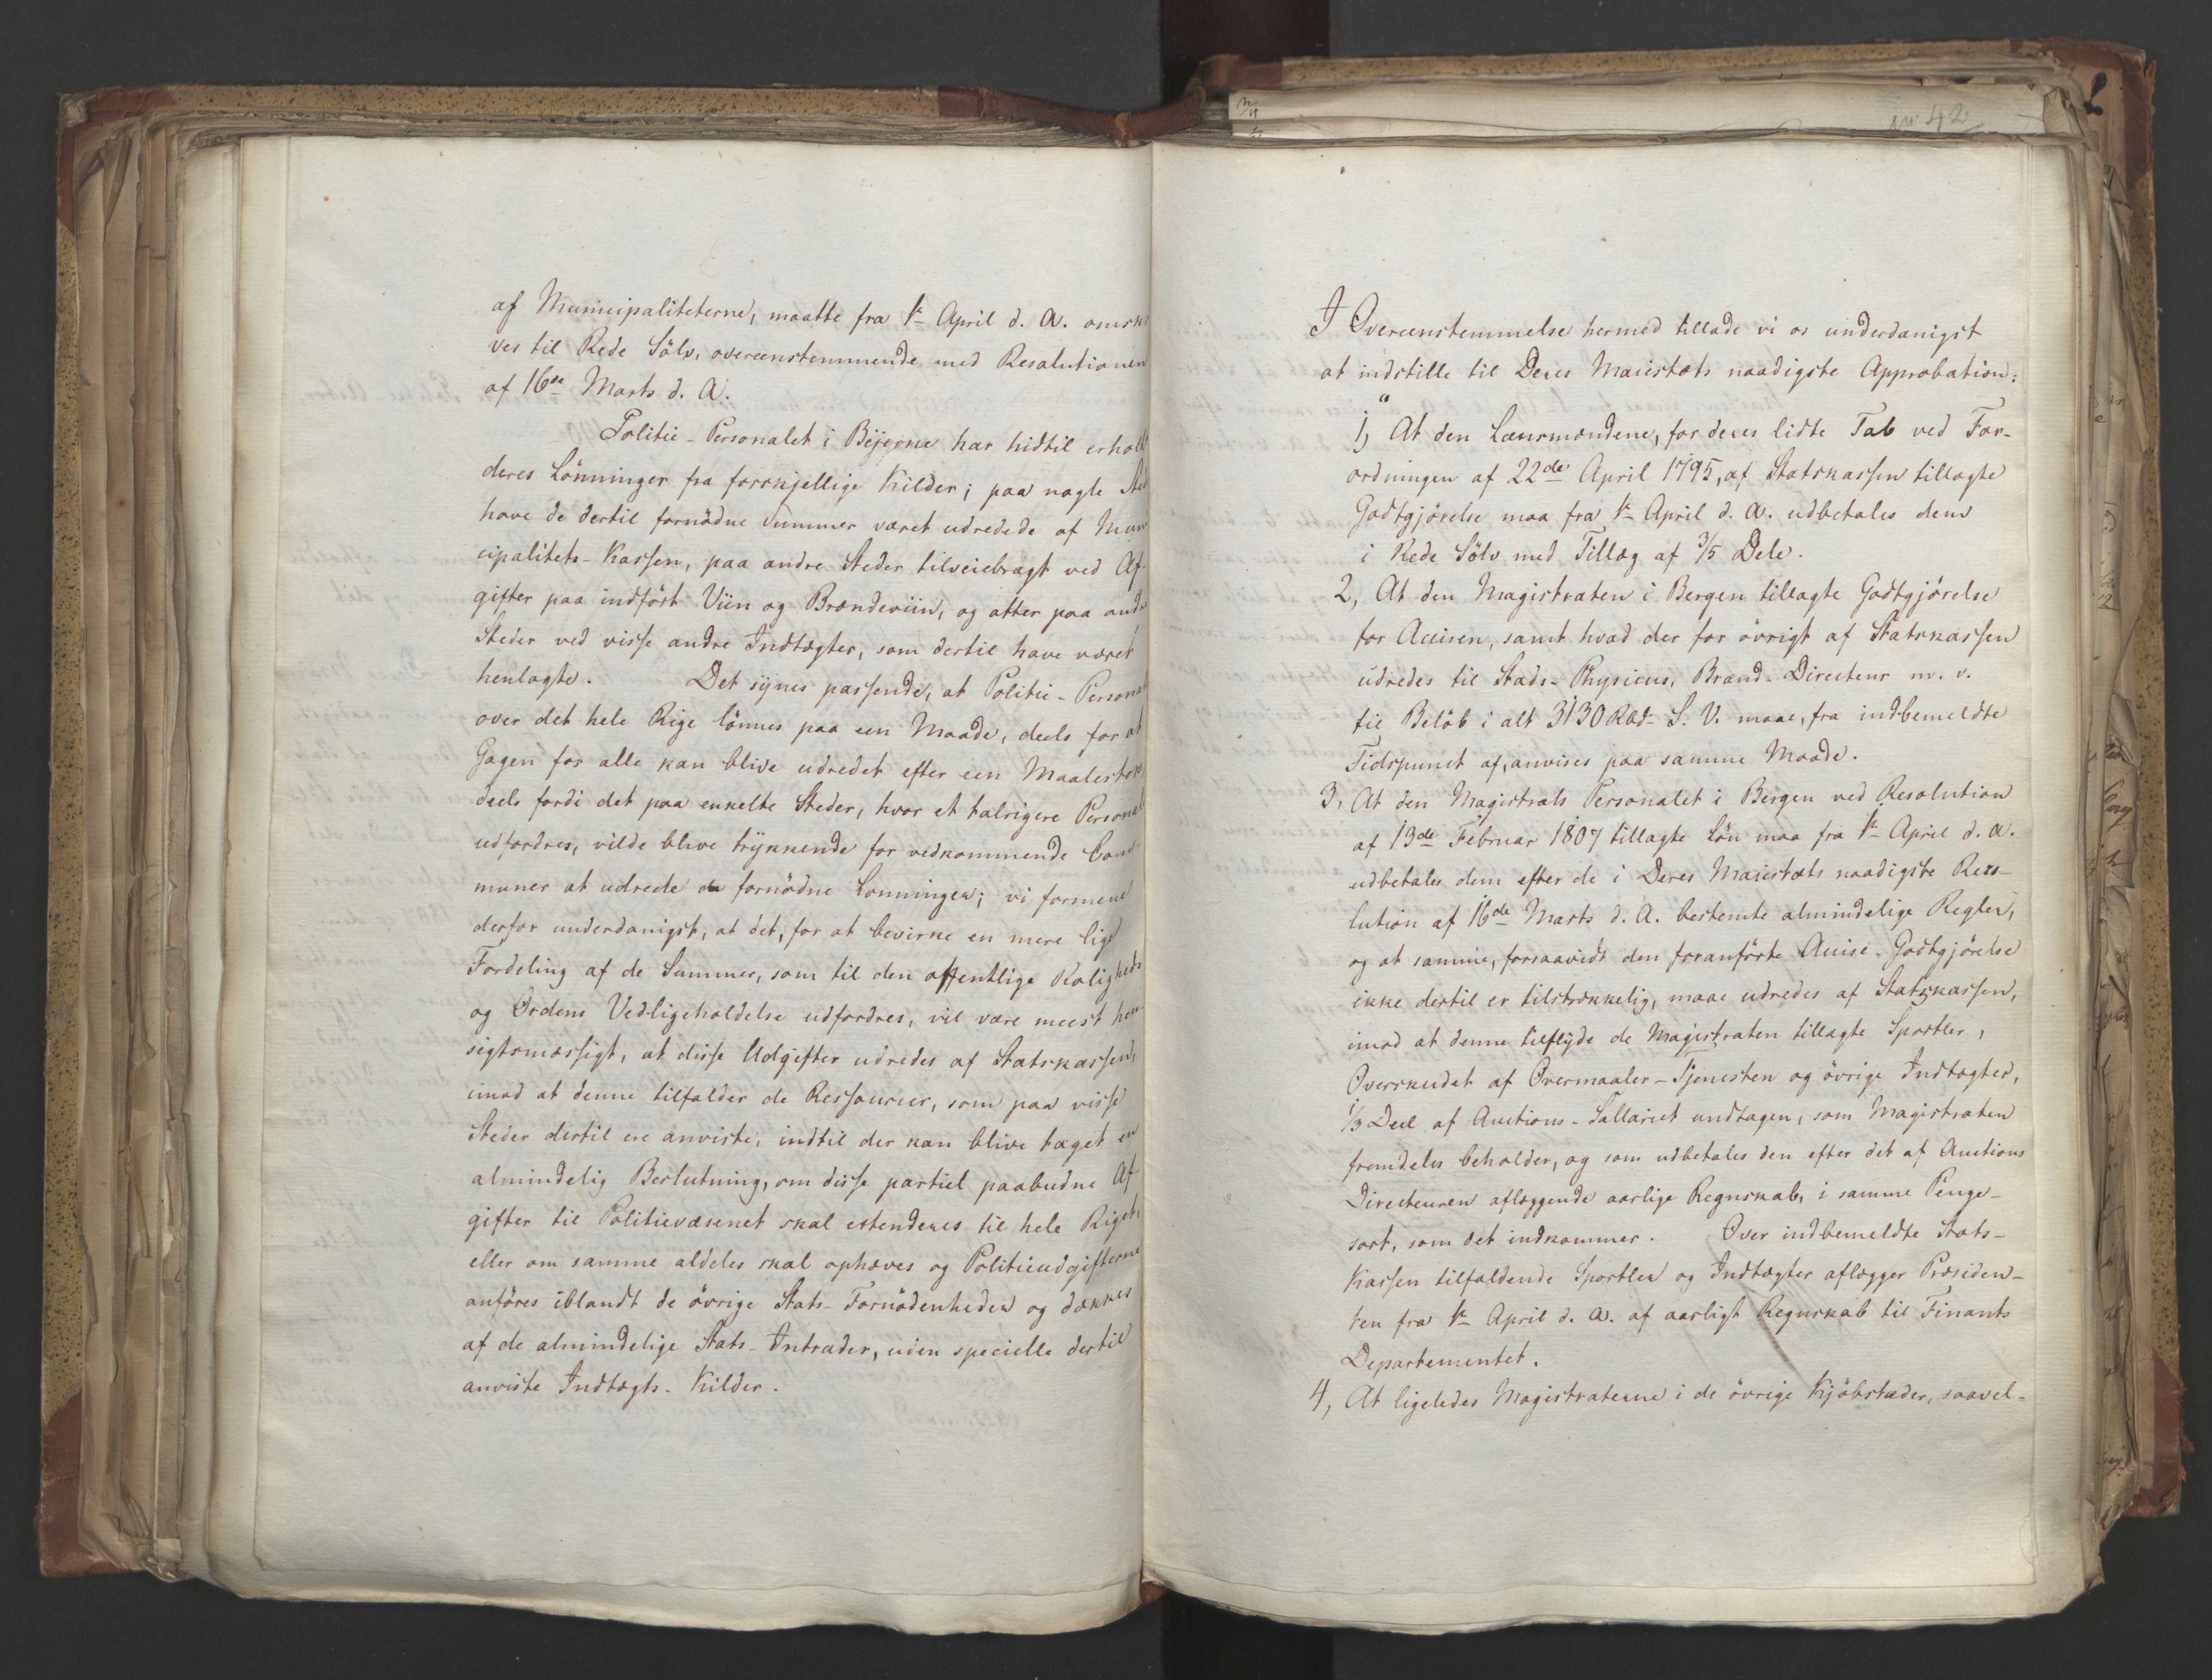 af Municipaliteterne, maatte fra 1te April d. A. omskr
ves til Rede Sölv, overeenstemmende med Resolutionen
af 16de Marts d. A.
Politie-Personalet i Byerne har hidtil erholdt
deres Lönninger fra forskjellige Kilder; paa nogle Sted
have de dertil fornödne Summer været udredede af Muni
cipalitets-Kassen, paa andre Steder tilveiebragt ved Af
gifter paa indfört Viin og Brændeviin, og atter paa andr
Steder ved visse andre Indtægter, som dertil have været
henlagte. Det synes passende, at Politie-Personal
over det hele Rige lönnes paa een Maade, deels for at
Gagen for alle kan blive udredet efter een Maalestok
deels fordi det paa enkelte Steder, hvor et talrigere Personal
udfordres, vilde blive trykkende for vedkommende Com
muner at udrede de fornödne Lönninger; vi formene
derfor underdanigst, at det, for at bevirke en mere lige
Fordeling af de Summer, som til den offentlige Roligheds
og Ordens Vedligeholdelse udfordres, vil være meest hen
sigtsmæssigt, at disse Udgifter udredes af Statskassen,
imod at denne tilfalder de Ressourcer, som paa visse
Steder dertil ere anviste, indtil der kan blive taget en
almindelig Beslutning, om disse partiel paabudne Af
gifter til Politievæsenet skal extenderes til hele Riget,
eller om samme aldeles skal ophæves og Politieudgifterne
anföres iblandt de övrige Stats-Fornödenheder og dækkes
af de almindelige Stats-Intrader, uden specielle dertil
anviste Indtægts-Kilder.
42
I Overeenstemmelse hermed tillade vi os underdanigst
at indstille til Deres Maiestæts naadigste Approbation:
1, At den Lænsmændene, for deres lidte Tab ved For-
ordningen af 22de April 1795, af Statskassen tillagte
Godtgjörelse maa fra 1te April d. A. udbetales dem
i Rede Sölv med Tillæg af 3/5 Dele.
2, At den Magistraten i Bergen tillagte Godtgjörelse
for Accisen, samt hvad der for övrigt af Statskassen
udredes til Stads-Physicus, Brand-Directeur m. v.
til Belöb i alt 3130 Rbd. S. V. maae, fra indbemeldte
Tidspunct af, anvises paa samme Maade.
3, At den Magistrats Personalet i Bergen ved Resolution
af 19de Februar 1807 tillagte Lön maa fra 1te April d. A.
udbetales dem efter de i Deres Maiestæts naadigste Reso-
lution af 16de Marts d. A. bestemte almindelige Regler,
og at samme, forsaavidt den foranförte Accise-Godtgjörelse
ikke dertil er tilstrækkelig, maae udredes af Statskassen,
imod at denne tilflyde de Magistraten tillagte Sportler,
Overskudet af Overmaaler-Tjenesten og övrige Indtægter,
1/3 Deel af Auctions-Sallariet undtagen, som Magistraten
fremdeles beholder, og som udbetales den efter det af Auctions
Directeuren aflæggende aarlige Regnskab, i samme Penge-
sort, som det indkommer. Over indbemeldte Stats-
Kassen tilfaldende Sportler og Indtægter aflægger Præsiden-
ten fra 1te April d. A. af aarligt Regnskab til Finants
Departementet.
4, At ligeledes Magistraterne i de övrige Kjöbstæder, saavel-